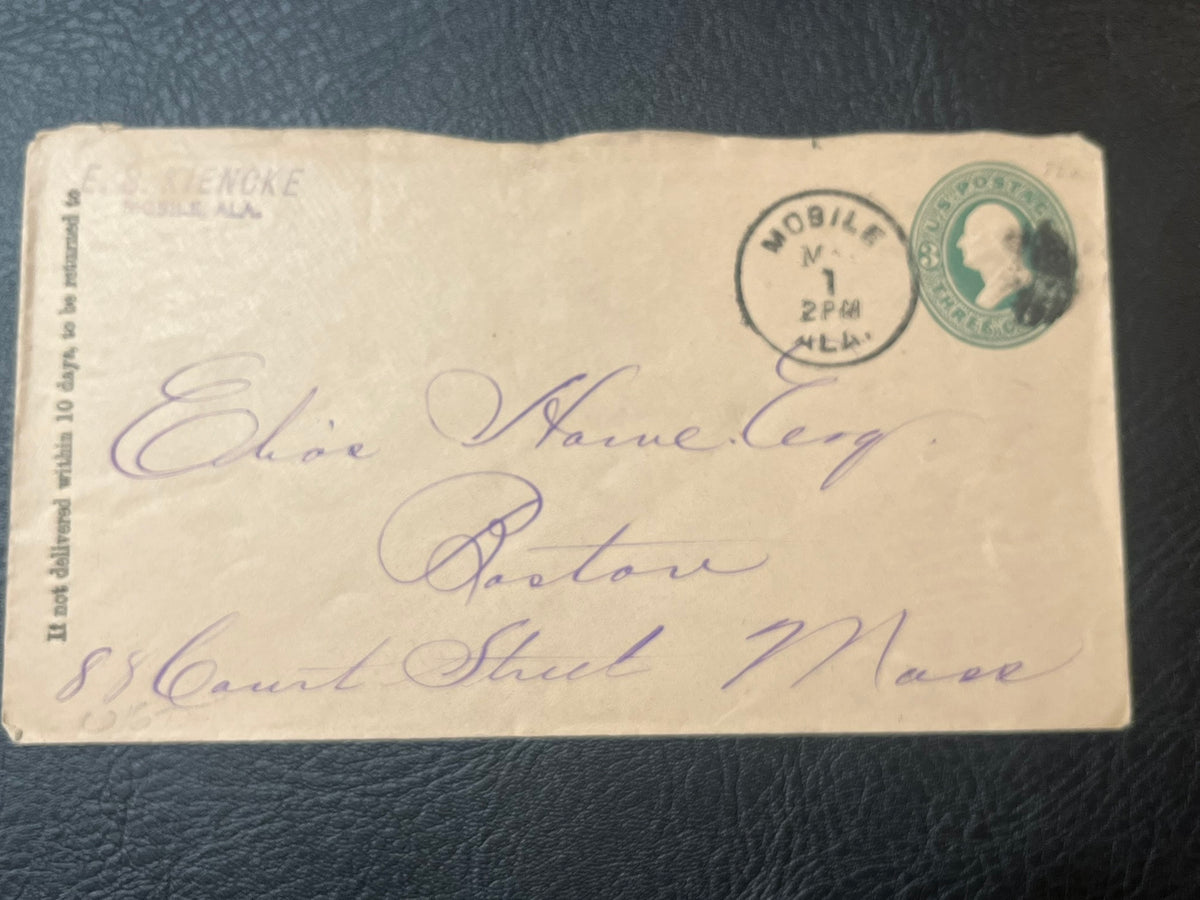 E. S. KIENCKE
MOBILE, ALA.
If not delivered within 10 days, to be returned to
MOBILE
1
2 PM
ALA.
U.S. POSTAGE
THREE
Elias Howe Esq.
Boston
88 Court Street Mass